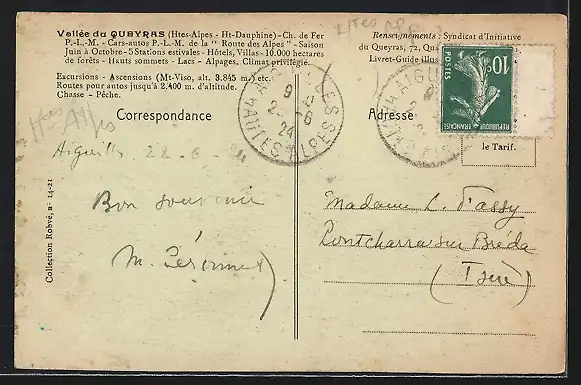 Vallée du QUEYRAS (Htes-Alpes - Ht-Dauphine) - Ch. de Fer
P.-L.-M. - Cars-autos P.-L.-M. de la " Route des Alpes " - Saison
Juin à Octobre - 5 Stations estivales - Hôtels, Villas - 10.000 hectares
de forêts - Hauts sommets - Lacs - Alpages, Climat privilégié.
Excursions - Ascensions (Mt-Viso, alt. 3.845 m.) etc.
Routes pour autos jusqu'à 2.400 m. d'altitude.
Chasse - Pêche.
Renseignements : Syndicat d'Initiative
du Queyras, 72, Qua
Livret-Guide illus
10c
POSTES
REPUBLIQUE FRANÇAISE
AIGUILLES
2-6
24
HAUTES ALPES
Htes Alpes
Correspondance
Adresse
le Tarif.
Aiguilles 22-6-24
Bon souvenir
Madame L. d'Assy
Pontcharra sur Bréda
(Isère)
Collection Robvé, n° 14-21